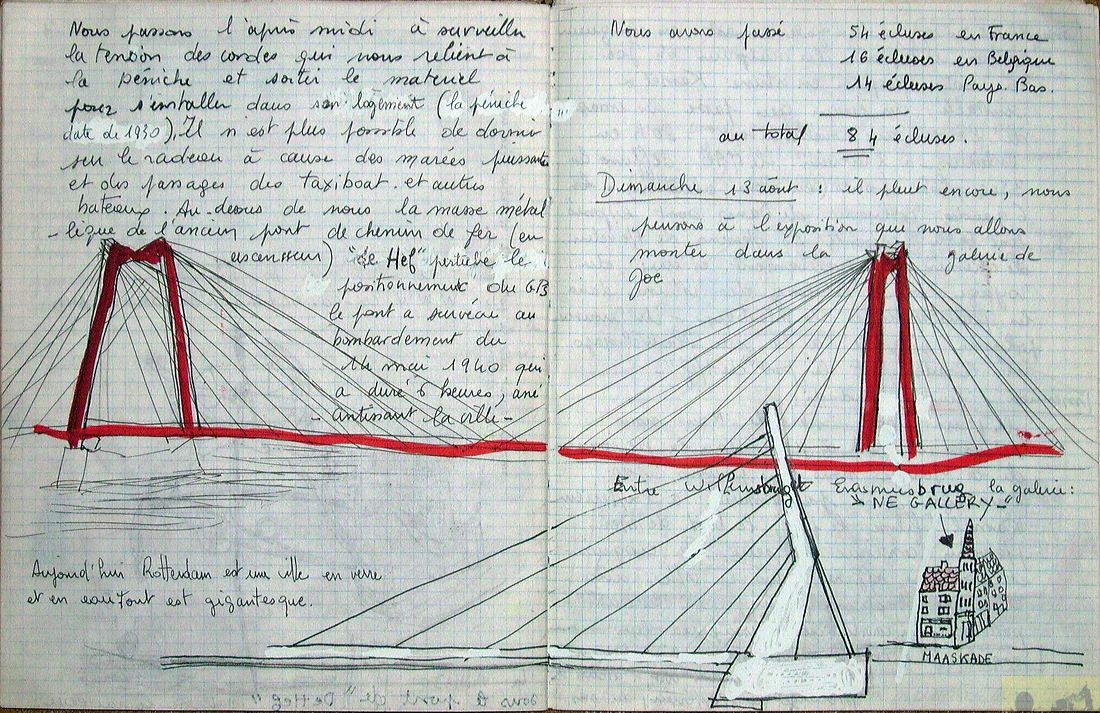 Nous passons l'après midi à surveiller
la tension des cordes qui nous relient à
la péniche et sortir le materiel
pour s'installer dans son logement (la péniche
date de 1930). Il n'est plus possible de dormir
sur le radeau à cause des marées puissantes
et des passages des taxiboat. et autres
bateaux. Au-dessus de nous la masse métal
-lique de l'ancien pont de chemin de fer (en
ascenseur) "de Hef" perturbe le
positionnement du GB
le pont a survécu au
bombardement du
14 mai 1940 qui
a duré 6 heures, ané
-antissant la ville-
Aujourd'hui Rotterdam est une ville en verre
et en eau. Tout est gigantesque.
Nous avons passé 54 écluses en France
16 écluses en Belgique
14 écluses Pays. Bas.
au total 84 écluses.
Dimanche 13 août : il pleut encore, nous
pensons à l'exposition que nous allons
monter dans la galerie de
Joe
Entre Erasmusbrug la galerie:
NE GALLERY-"
MAASKADE